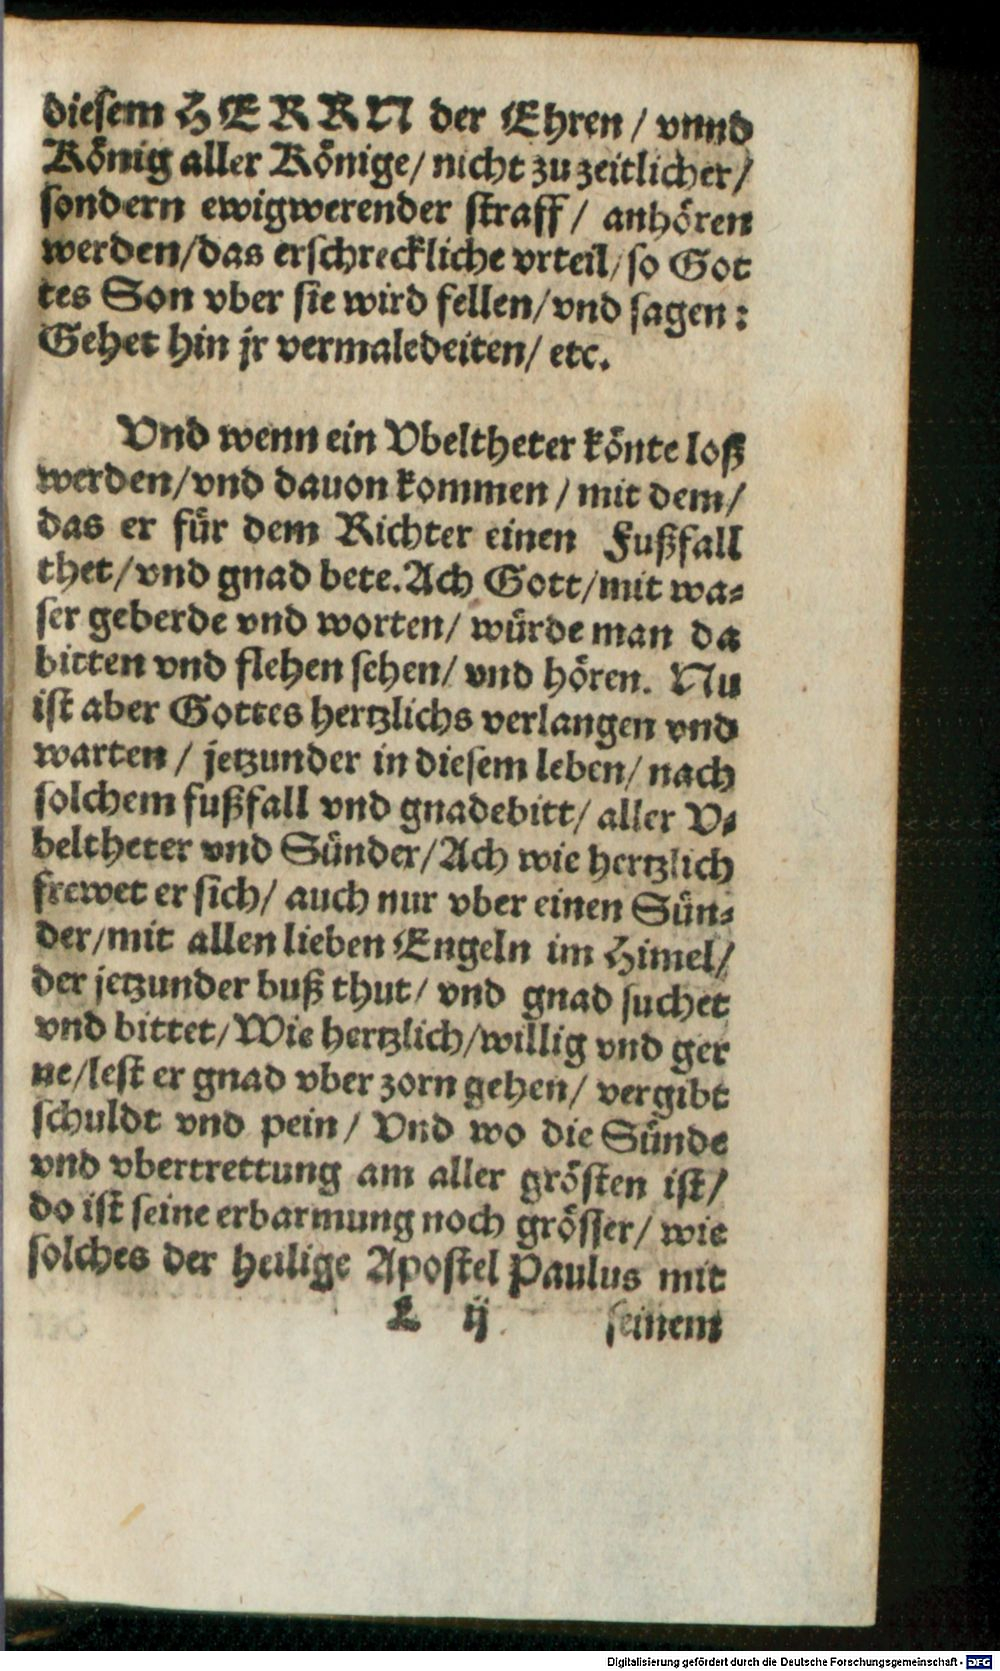 diesem HERRN der Ehren / vnnd
König aller Könige / nicht zu zeitlicher /
sondern ewigwerender straff / anhören
werden / das erschreckliche vrteil / so Got
tes Son vber sie wird fellen / vnd sagen :
Gehet hin jr vermaledeiten / etc.
Vnd wenn ein Vbeltheter könte loß
werden / vnd dauon kommen / mit dem /
das er für dem Richter einen Fußfall
thet / vnd gnad bete. Ach Gott / mit wa-
ser geberde vnd worten / würde man da
bitten vnd flehen sehen / vnd hören. Nu
ist aber Gottes hertzlichs verlangen vnd
warten / jetzunder in diesem leben / nach
solchem fußfall vnd gnadebitt / aller V-
beltheter vnd Sünder / Ach wie hertzlich
frewet er sich / auch nur vber einen Sün-
der / mit allen lieben Engeln im Himel /
der jetzunder buß thut / vnd gnad suchet
vnd bittet / Wie hertzlich / willig vnd ger
ne / lest er gnad vber zorn gehen / vergibt
schuldt vnd pein / Vnd wo die Sünde
vnd vbertrettung am aller grösten ist /
do ist seine erbarmung noch grösser / wie
solches der heilige Apostel Paulus mit
L ij seinem
Digitalisierung gefördert durch die Deutsche Forschungsgemeinschaft - DFG